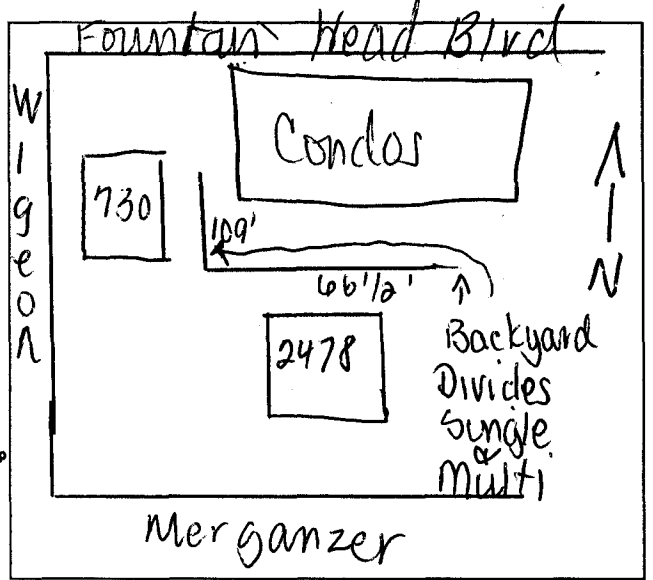 Fountain Head Blvd
Wigeon
Condos
730
109'
66'1/2'
N
2478
Backyard
Divides
Single
&
Multi
Merganzer